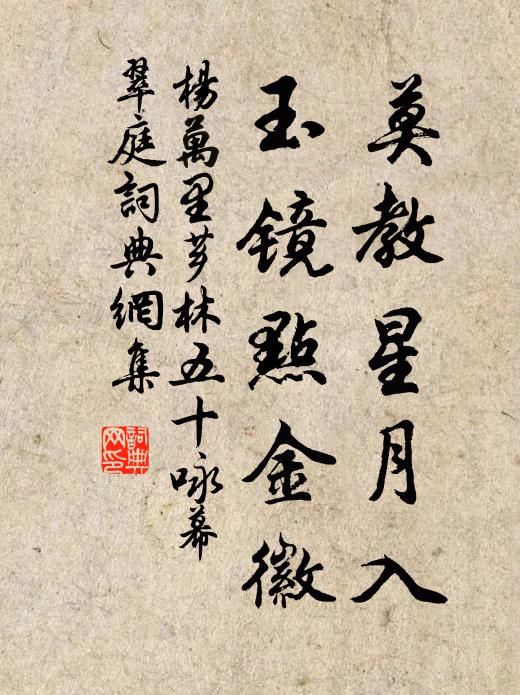 莫教星月入
玉镜點金徽
楊萬里芗林五十咏幕
翠庭詞典網集
詞典
网印